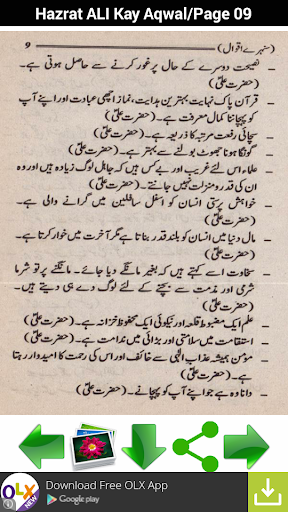 Hazrat ALI Kay Aqwal/Page 09
(سنہرے اقوال) 9
_ نصیحت دوسرے کے حال پر غور کرنے سے حاصل ہوتی ہے۔
(حضرت علیؓ)
_ قرآن پاک نہایت بہترین ہدایت، نماز اچھی عبادت اور اپنے آپ
کو پہچاننا کمال معرفت ہے۔ (حضرت علیؓ)
_ سچائی رفعت مرتبہ کا ذریعہ ہے۔ (حضرت علیؓ)
_ گونگا ہونا جھوٹ بولنے سے بہتر ہے۔ (حضرت علیؓ)
_ علماء اس لئے غریب اور بے کس ہیں کہ جاہل لوگ زیادہ ہیں اور وہ
ان کی قدر و منزلت نہیں جانتے۔ (حضرت علیؓ)
_ خواہش پرستی انسان کو اسفل سافلین میں گرانے والی ہے۔
(حضرت علیؓ)
_ مال دنیا میں انسان کو بلند قدر بناتا ہے مگر آخرت میں خوار کرتا ہے۔
(حضرت علیؓ)
_ سخاوت اسے کہتے ہیں کہ بغیر مانگے دیا جائے۔ مانگنے پر تو شرما
شرمی اور مذمت سے بچنے کے لئے لوگ دے ہی دیتے ہیں۔
(حضرت علیؓ)
_ علم ایک مضبوط قلعہ اور نیکوئی ایک محفوظ خزانہ ہے۔ (حضرت علیؓ)
_ استقامت میں سلامتی اور برائی میں ندامت ہے۔ (حضرت علیؓ)
_ مومن ہمیشہ عذاب الٰہی سے خائف اور اس کی رحمت کا امیدوار رہتا
ہے۔ (حضرت علیؓ)
_ دانا وہ ہے جو اپنے آپ کو پہچانے۔ (حضرت علیؓ)
OLX
NEW
Download Free OLX App
Google play